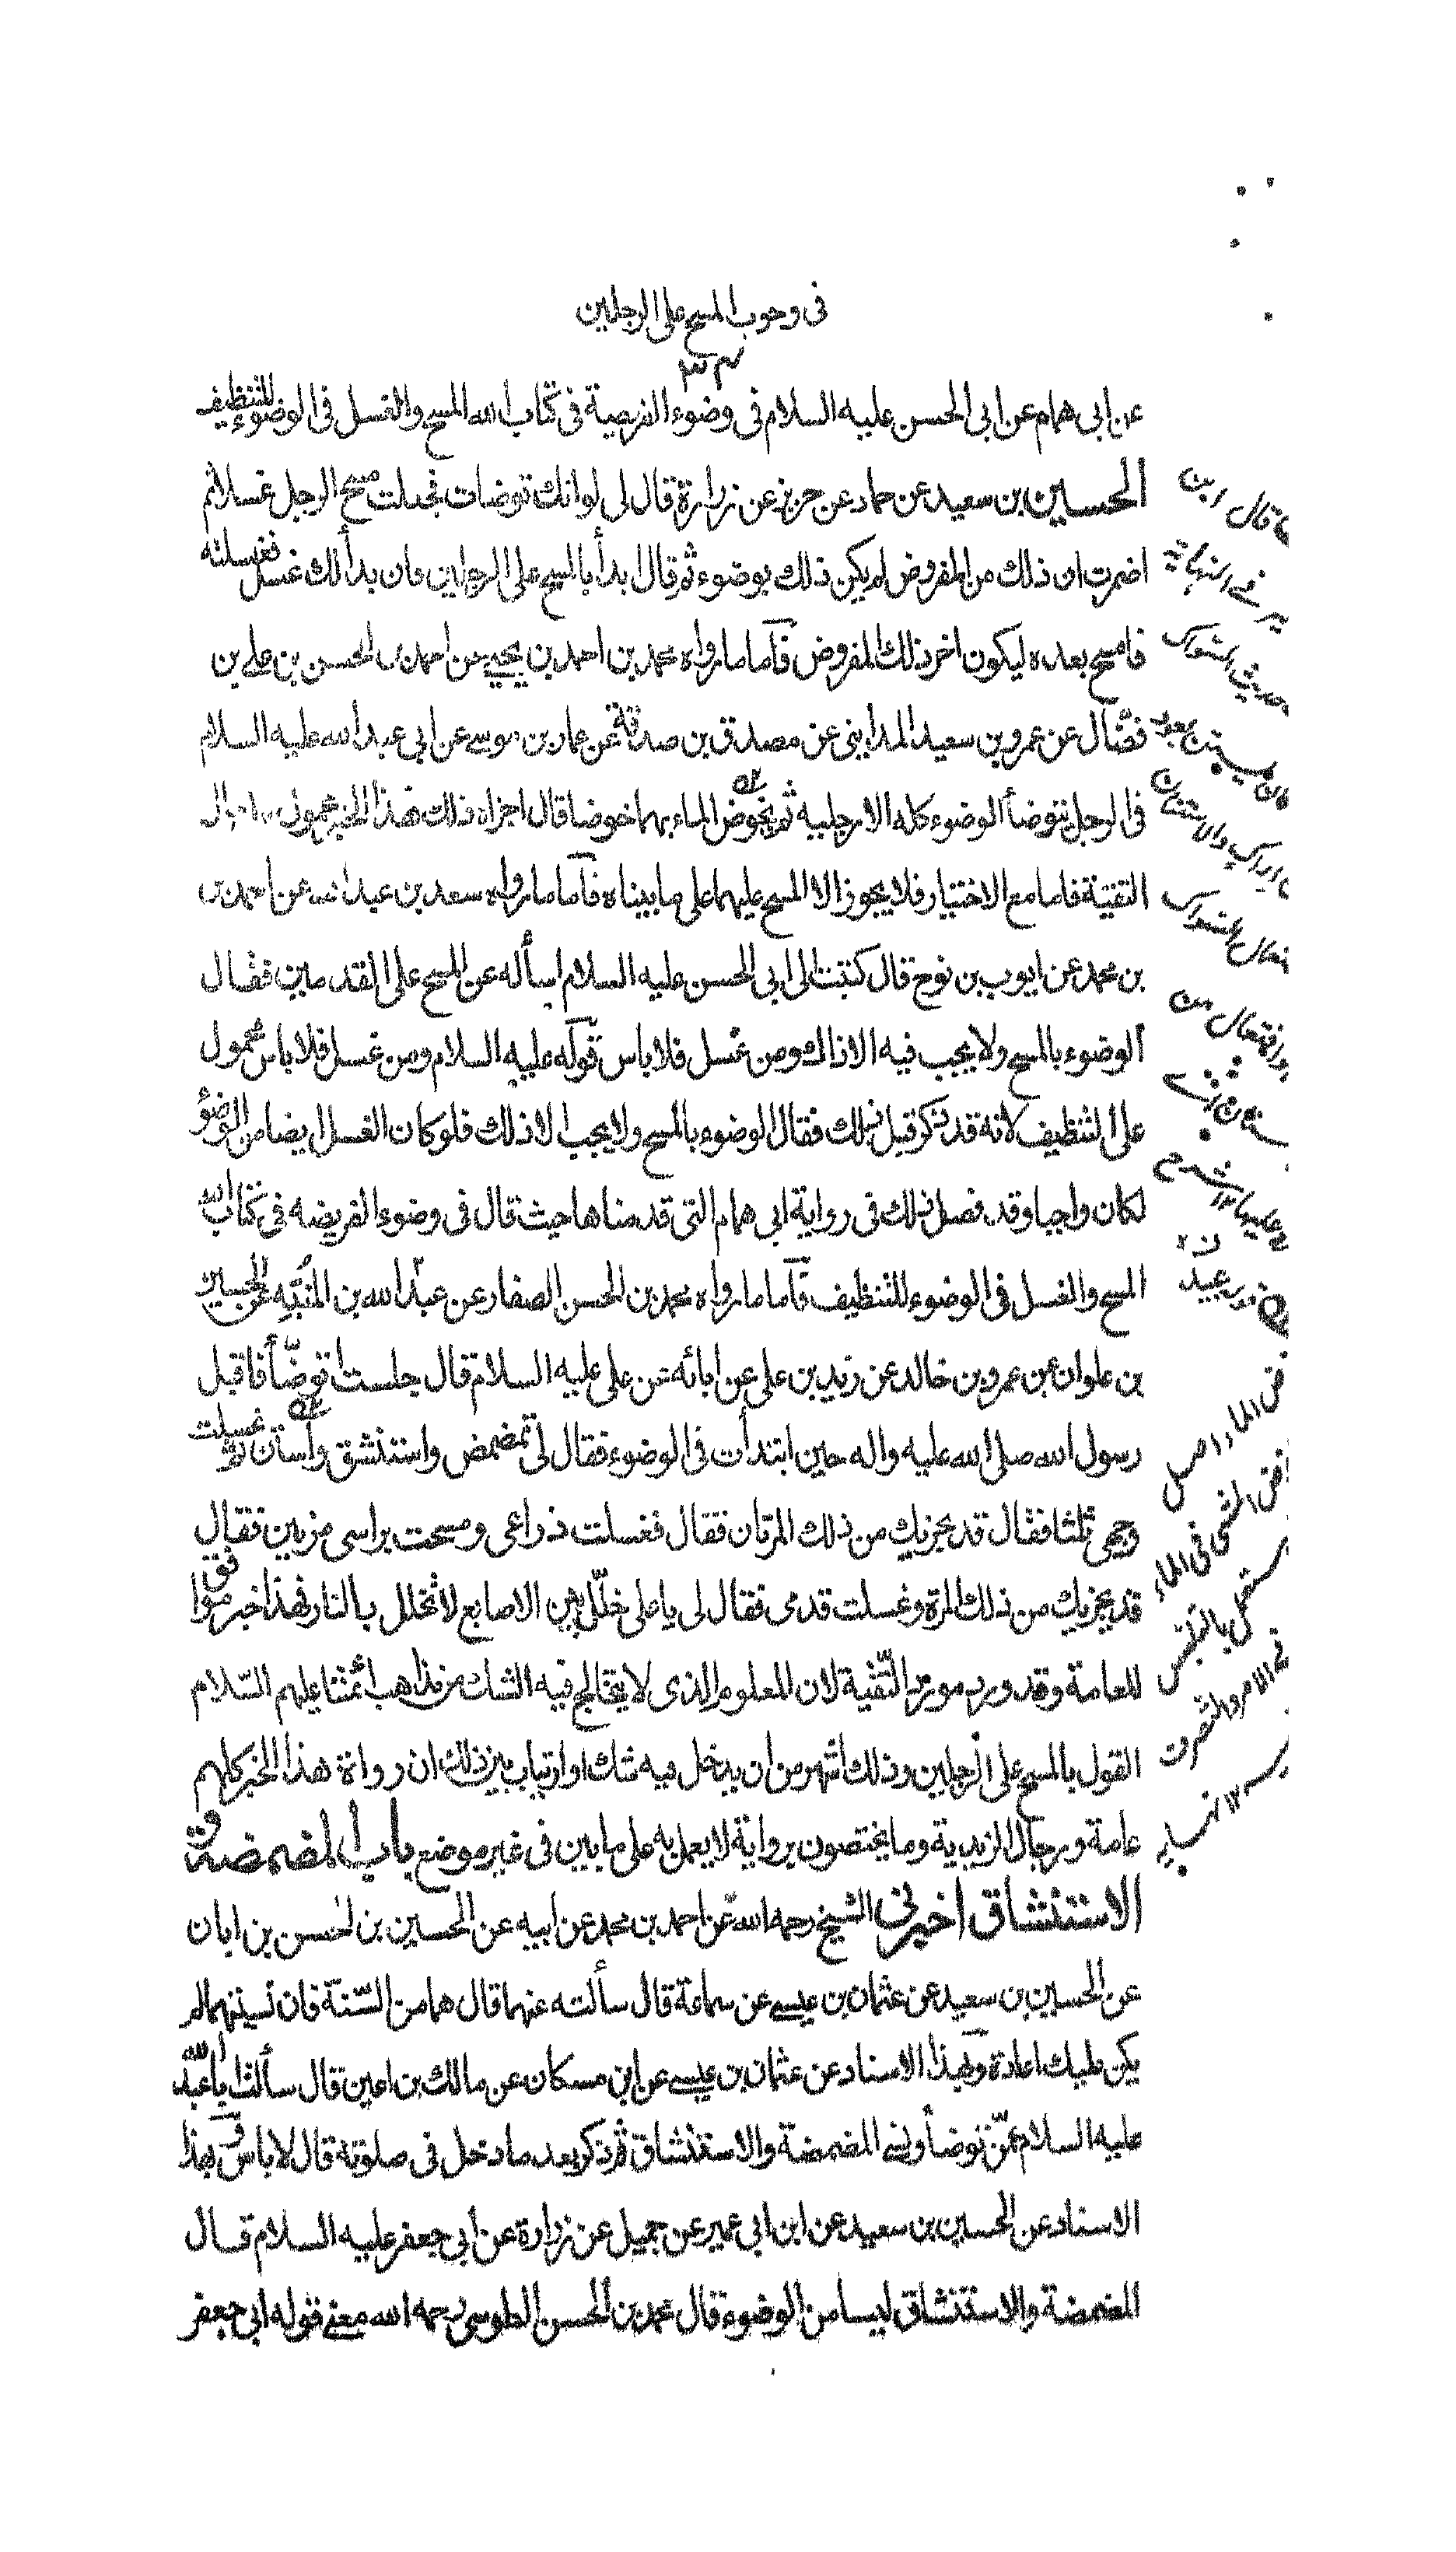 فى وجوب المسح على الرجلين
٣٤
عن ابى همام عن ابى الحسن عليه السلام فى وضوء الفريضة فى كتاب الله المسح والغسل فى الوضوء للتنظيف
الحسين بن سعيد عن حماد عن حريز عن زرارة قال لى لو انك توضات فجعلت مسح الرجل غسلا ثم
اضمرت ان ذلك من المفروض لم يكن ذلك بوضوء ثم قال ابدأ بالمسح على الرجلين وان بدأ لك غسل فغسلته
فامسح بعده ليكون اخر ذلك المفروض فاما ما رواه محمد بن احمد بن يحيى عن احمد بن الحسن بن على بن
فضّال عن عمرو بن سعيد المداينى عن مصدق بن صدقة عن عمار بن موسى عن ابى عبد الله عليه السلام
فى الرجل يتوضأ الوضوء كله الا رجليه ثم يخوض الماء بهما خوضا قال اجزاه ذلك فهذا الخبر محمول على حال
التقيّة فاما مع الاختيار فلا يجوز الا المسح عليهما على ما بيناه فاما ما رواه سعد بن عبد الله عن احمد بن
بن محمد عن ايوب بن نوح قال كتبت الى ابى الحسن عليه السلام اسأله عن المسح على القدمين فقال
الوضوء بالمسح ولا يجب فيه الا ذاك ومن غسل فلا باس قوله عليه السلام ومن غسل فلا باس محمول
على التنظيف لانه قد ذكر قبل ذلك فقال الوضوء بالمسح ولا يجب الا ذلك فلو كان الغسل ايضا من الوضوء
لكان واجبا وقد فصل ذلك فى رواية ابى همام التى قدمناها حيث قال فى وضوء الفريضه فى كتاب الله
المسح والغسل فى الوضوء للتنظيف فاما ما رواه محمد بن الحسن الصفار عن عبد الله بن المُنبّه عن الحسين
بن علوان عن عمرو بن خالد عن زيد بن على عن ابائه عن على عليه السلام قال جلست اتوضّأ فاقبل
رسول الله صلى الله عليه واله حين ابتدأت فى الوضوء فقال لى تمضمض واستنشق واستن ثم غسلت
وجهى ثلثا فقال قد يجزيك من ذلك المرتان فقال فغسلت ذراعى ومسحت براسى مرتين فقال
قد يجزيك من ذلك المرة وغسلت قدمى فقال لى يا على خلّل بين الاصابع لا تخلل بالنار فهذا خبر موافق
للعامة وقد ورد مورد التّقية لان المعلوم الذى لا يتخالج فيه الشك من مذاهب ائمتنا عليهم السّلام
القول بالمسح على الرجلين وذلك اشهر من ان يدخل فيه شك او ارتياب يبين ذلك ان رواة هذا الخبر كلهم
عامة ورجال الزيدية وما يختصون برواية لا يعمل به على ما بين فى غير موضع باب المضمضة و
الاستنشاق اخبرنى الشيخ رحمه الله عن احمد بن محمد عن ابيه عن الحسين بن الحسن بن ابان
عن الحسين بن سعيد عن عثمان بن عيسى عن سماعة قال سألته عنهما قال هما من السّنة فان نسيتهما لم
يكن عليك اعادة وبهذا الاسناد عن عثمان بن عيسى عن ابن مسكان عن مالك بن اعين قال سألت ابا عبد الله
عليه السلام عمّن توضأ ونسى المضمضة والاستنشاق ثم ذكر بعد ما دخل فى صلوته قال لا باس وبهذا
الاسناد عن الحسين بن سعيد عن ابن ابى عمير عن جميل عن زرارة عن ابى جعفر عليه السلام قال
المضمضة والاستنشاق ليسا من الوضوء قال محمد بن الحسن الطوسى رحمه الله معنى قوله ابى جعفر
قال ابن
فى النهاية
حديث السواك